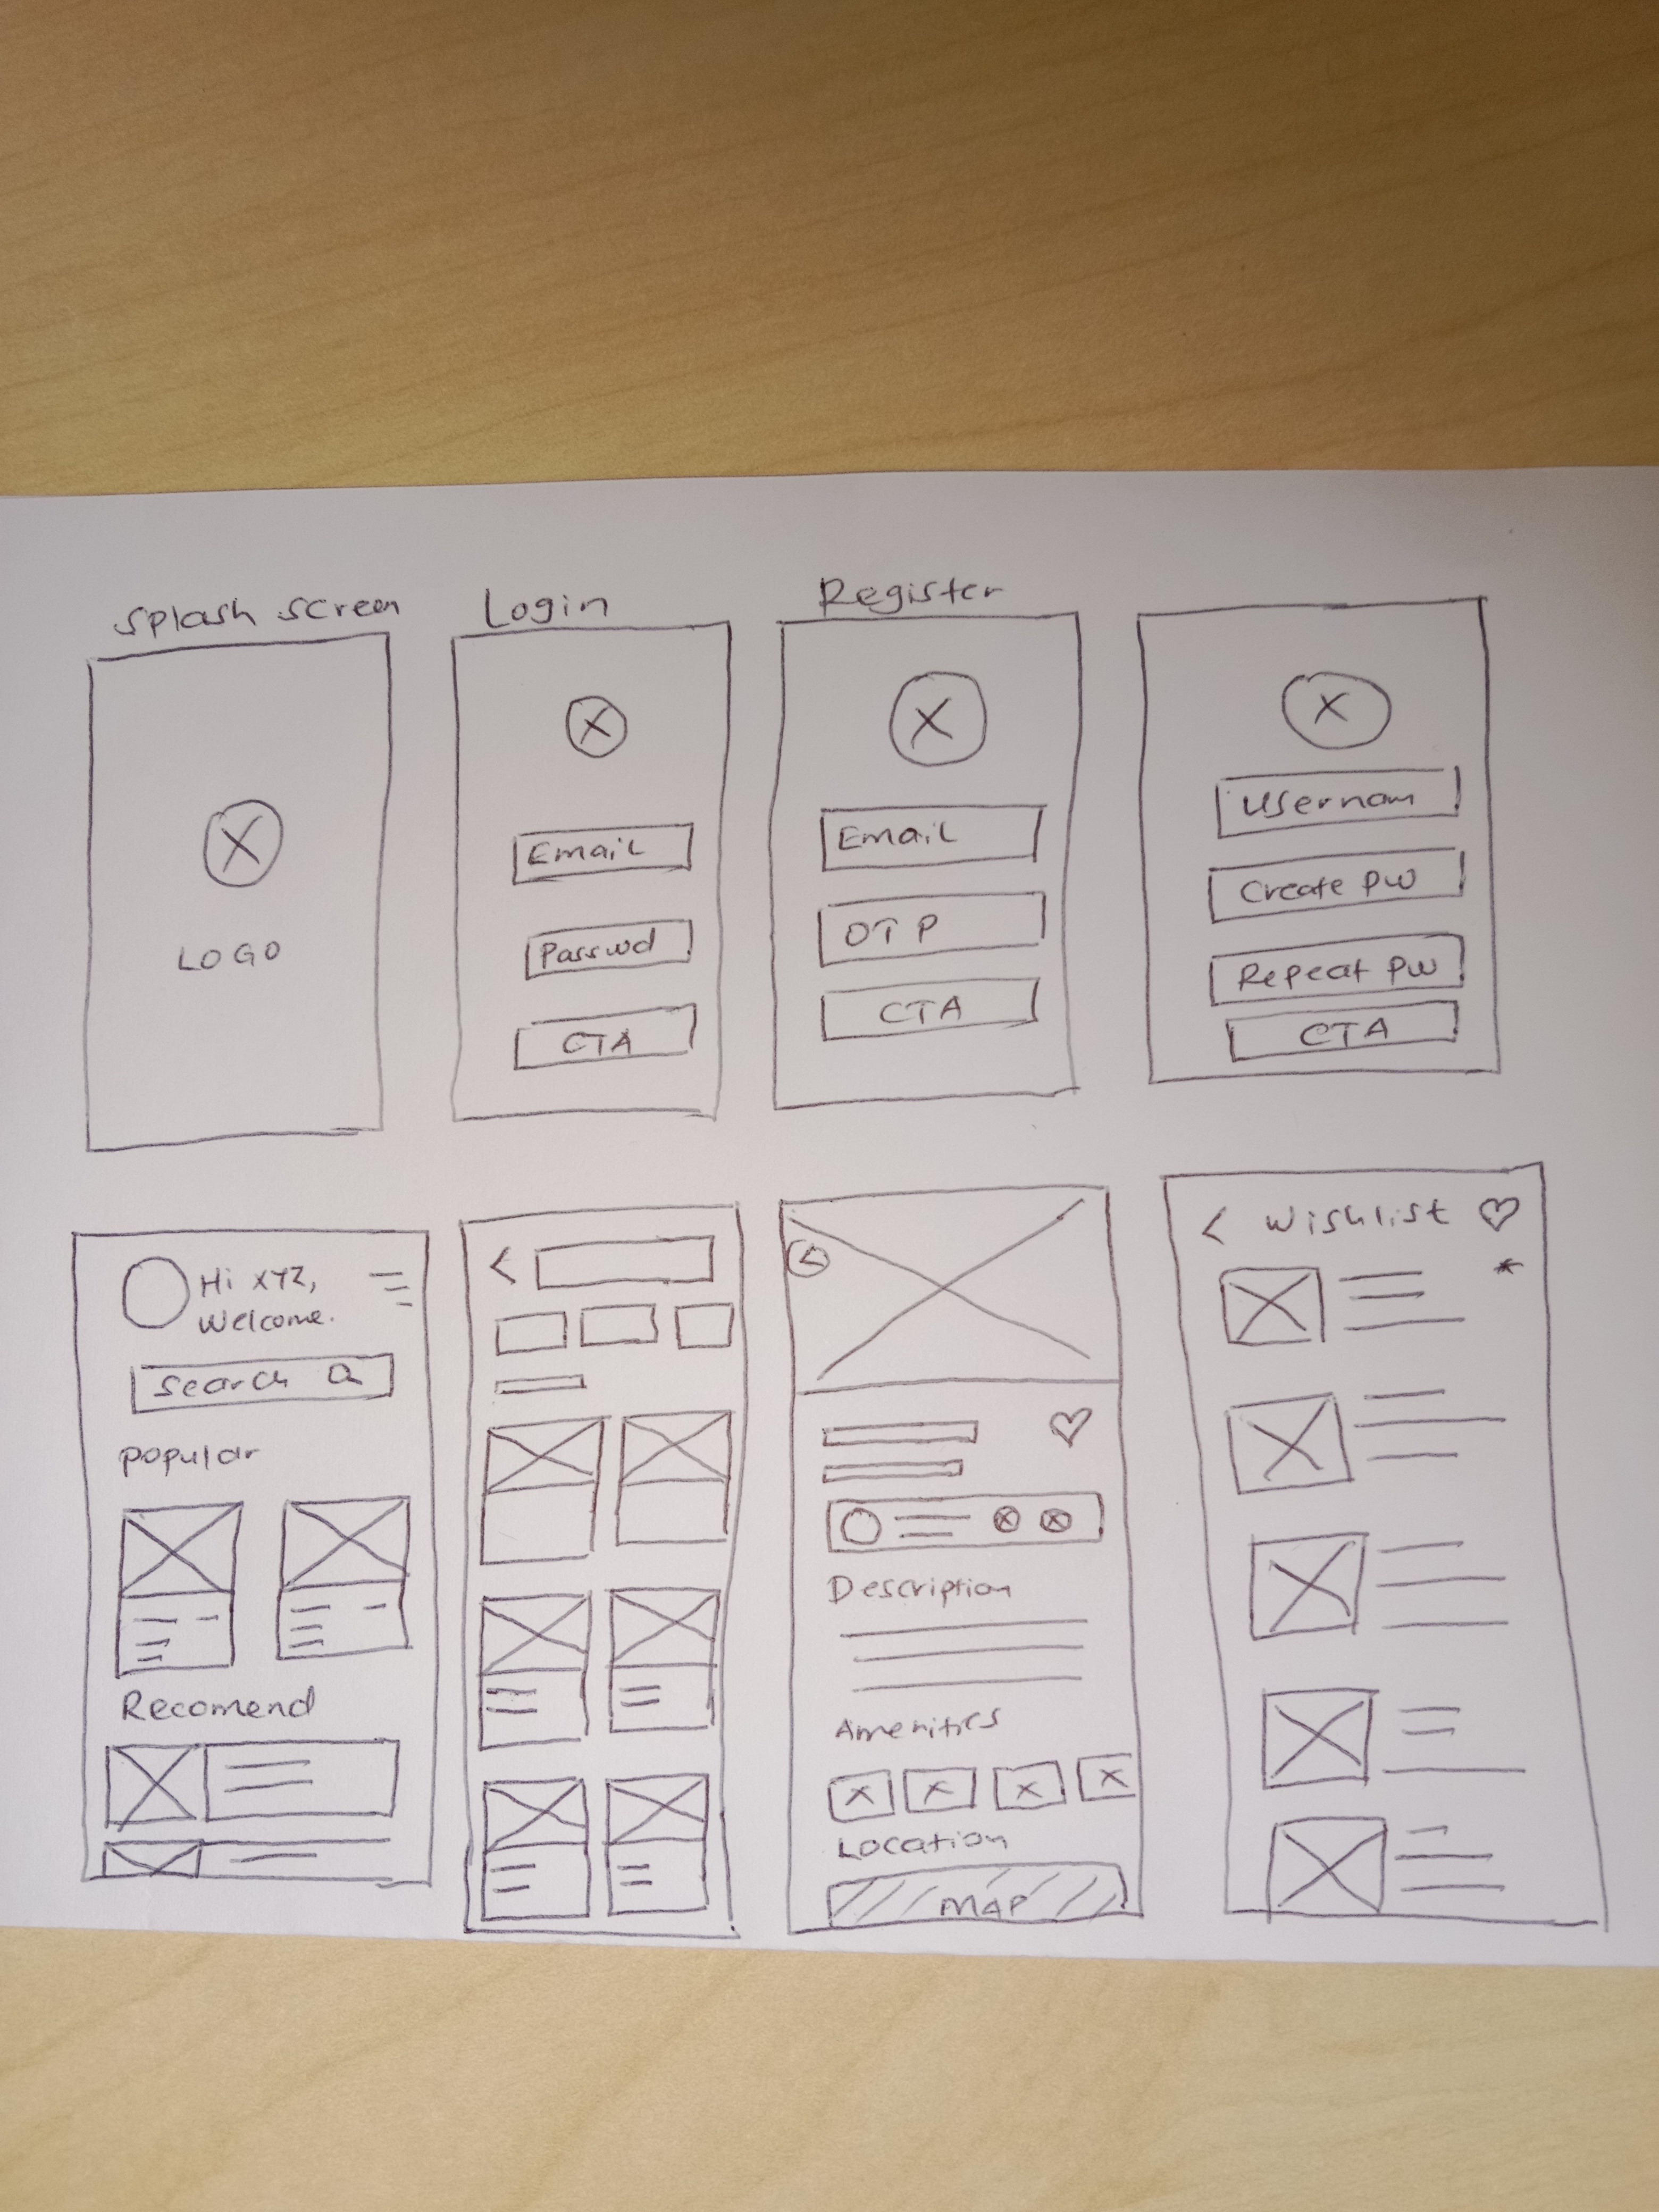 Splash screen
LOGO
Login
Email
Passwd
CTA
Register
Email
OTP
CTA
Usernam
Create PW
Repeat PW
CTA
Hi XYZ,
Welcome.
Search
Popular
Recomend
Description
Amenities
Location
MAP
Wishlist